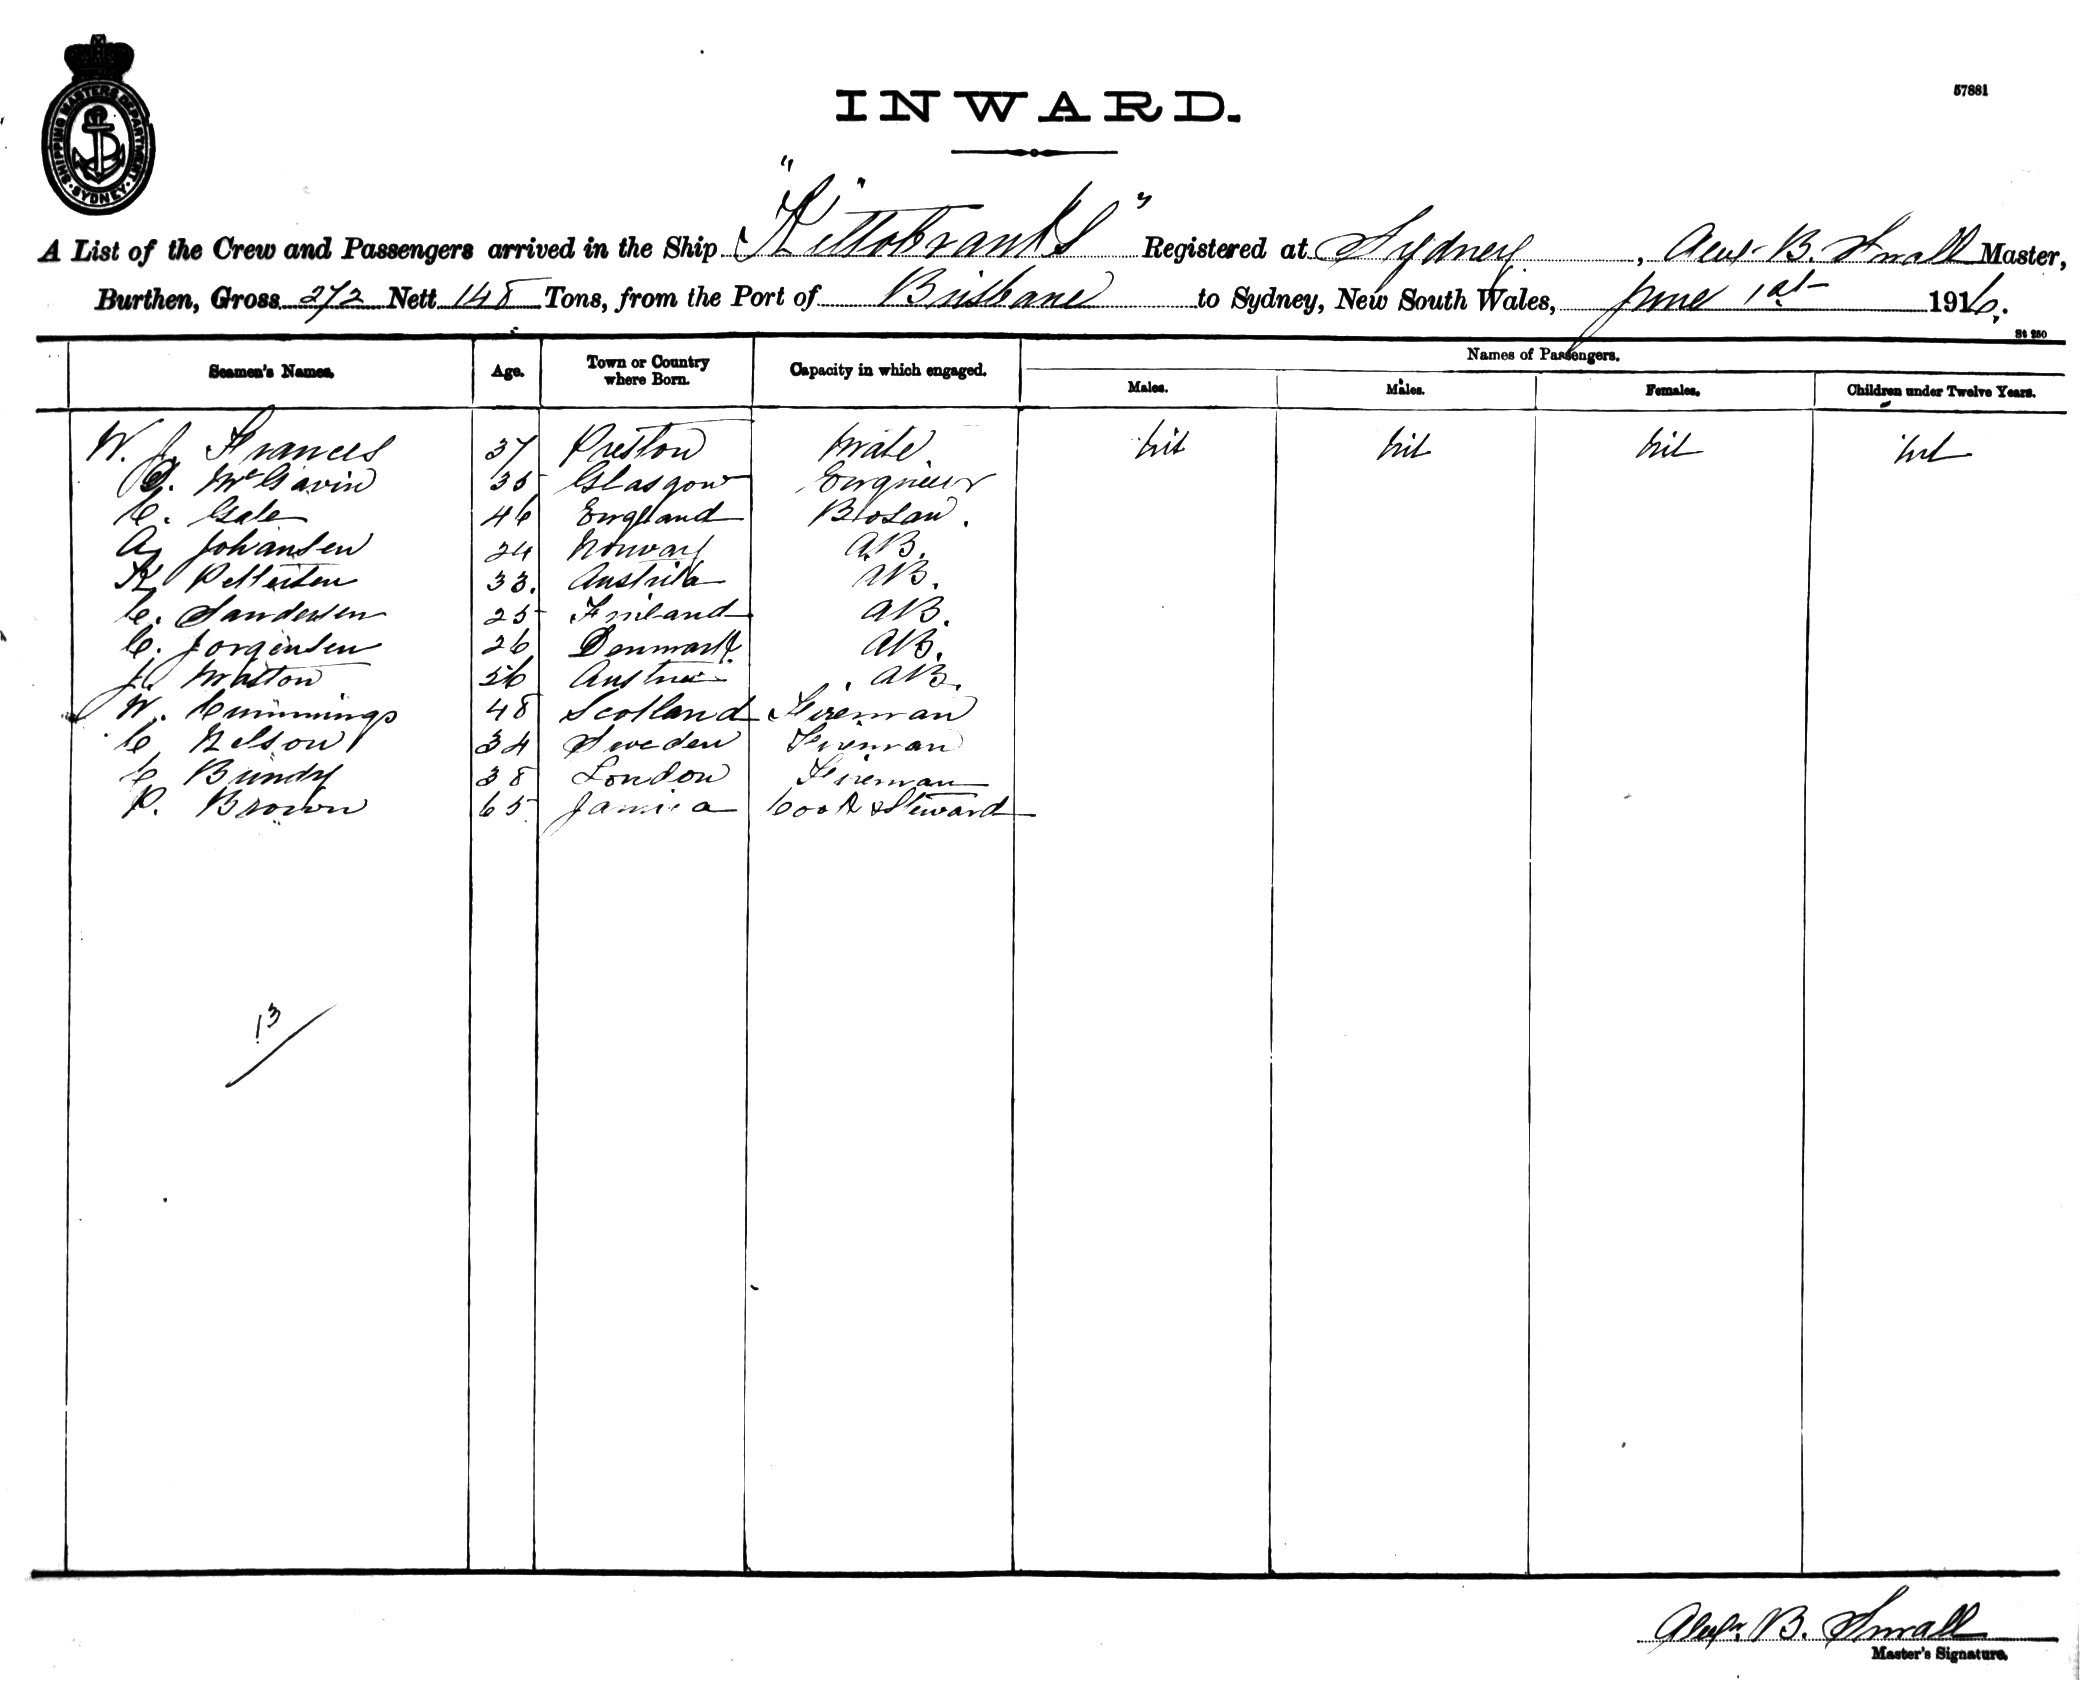 57881
INWARD.
SHIPPING MASTERS DEPARTMENT SYDNEY
A List of the Crew and Passengers arrived in the Ship "Kiltobranks" Registered at Sydney, Alexr B. Small Master,
Burthen, Gross 272 Nett 148 Tons, from the Port of Brisbane to Sydney, New South Wales, June 1st 1916.
St 250
Seamen's Names. Age. Town or Country where Born. Capacity in which engaged. Names of Passengers.
Males. Males. Females. Children under Twelve Years.
W. J. Frances 37 Preston Mate nil nil nil nil
McGavin 35 Glasgow Engineer
C. Gale 46 England Bosan.
A. Johansen 24 Norway A.B.
K. Pettersen 33. Austrila AB.
C. Sandersen 25 Finland AB.
C. Jorgensen 26 Denmark AB.
J. Matton Austria AB.
W. Cummings 48 Scotland Fireman
C Nelson 34 Sweden Fireman
C Bundy 38 London Fireman
P. Brown 65 Jamica Cook & Steward
13
Alexr. B. Small
Master's Signature.